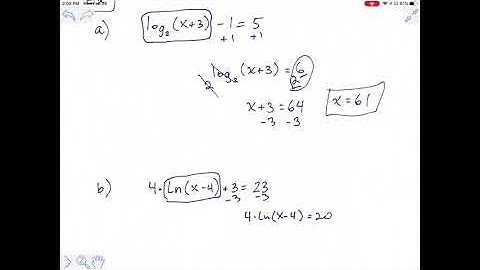 a) log₂(x+3) - 1 = 5
+1 +1
2 log₂(x+3) = 6
2
x+3 = 64
-3 -3
x = 61
b) 4 · Ln(x-4) + 3 = 23
-3 -3
4 · Ln(x-4) = 20